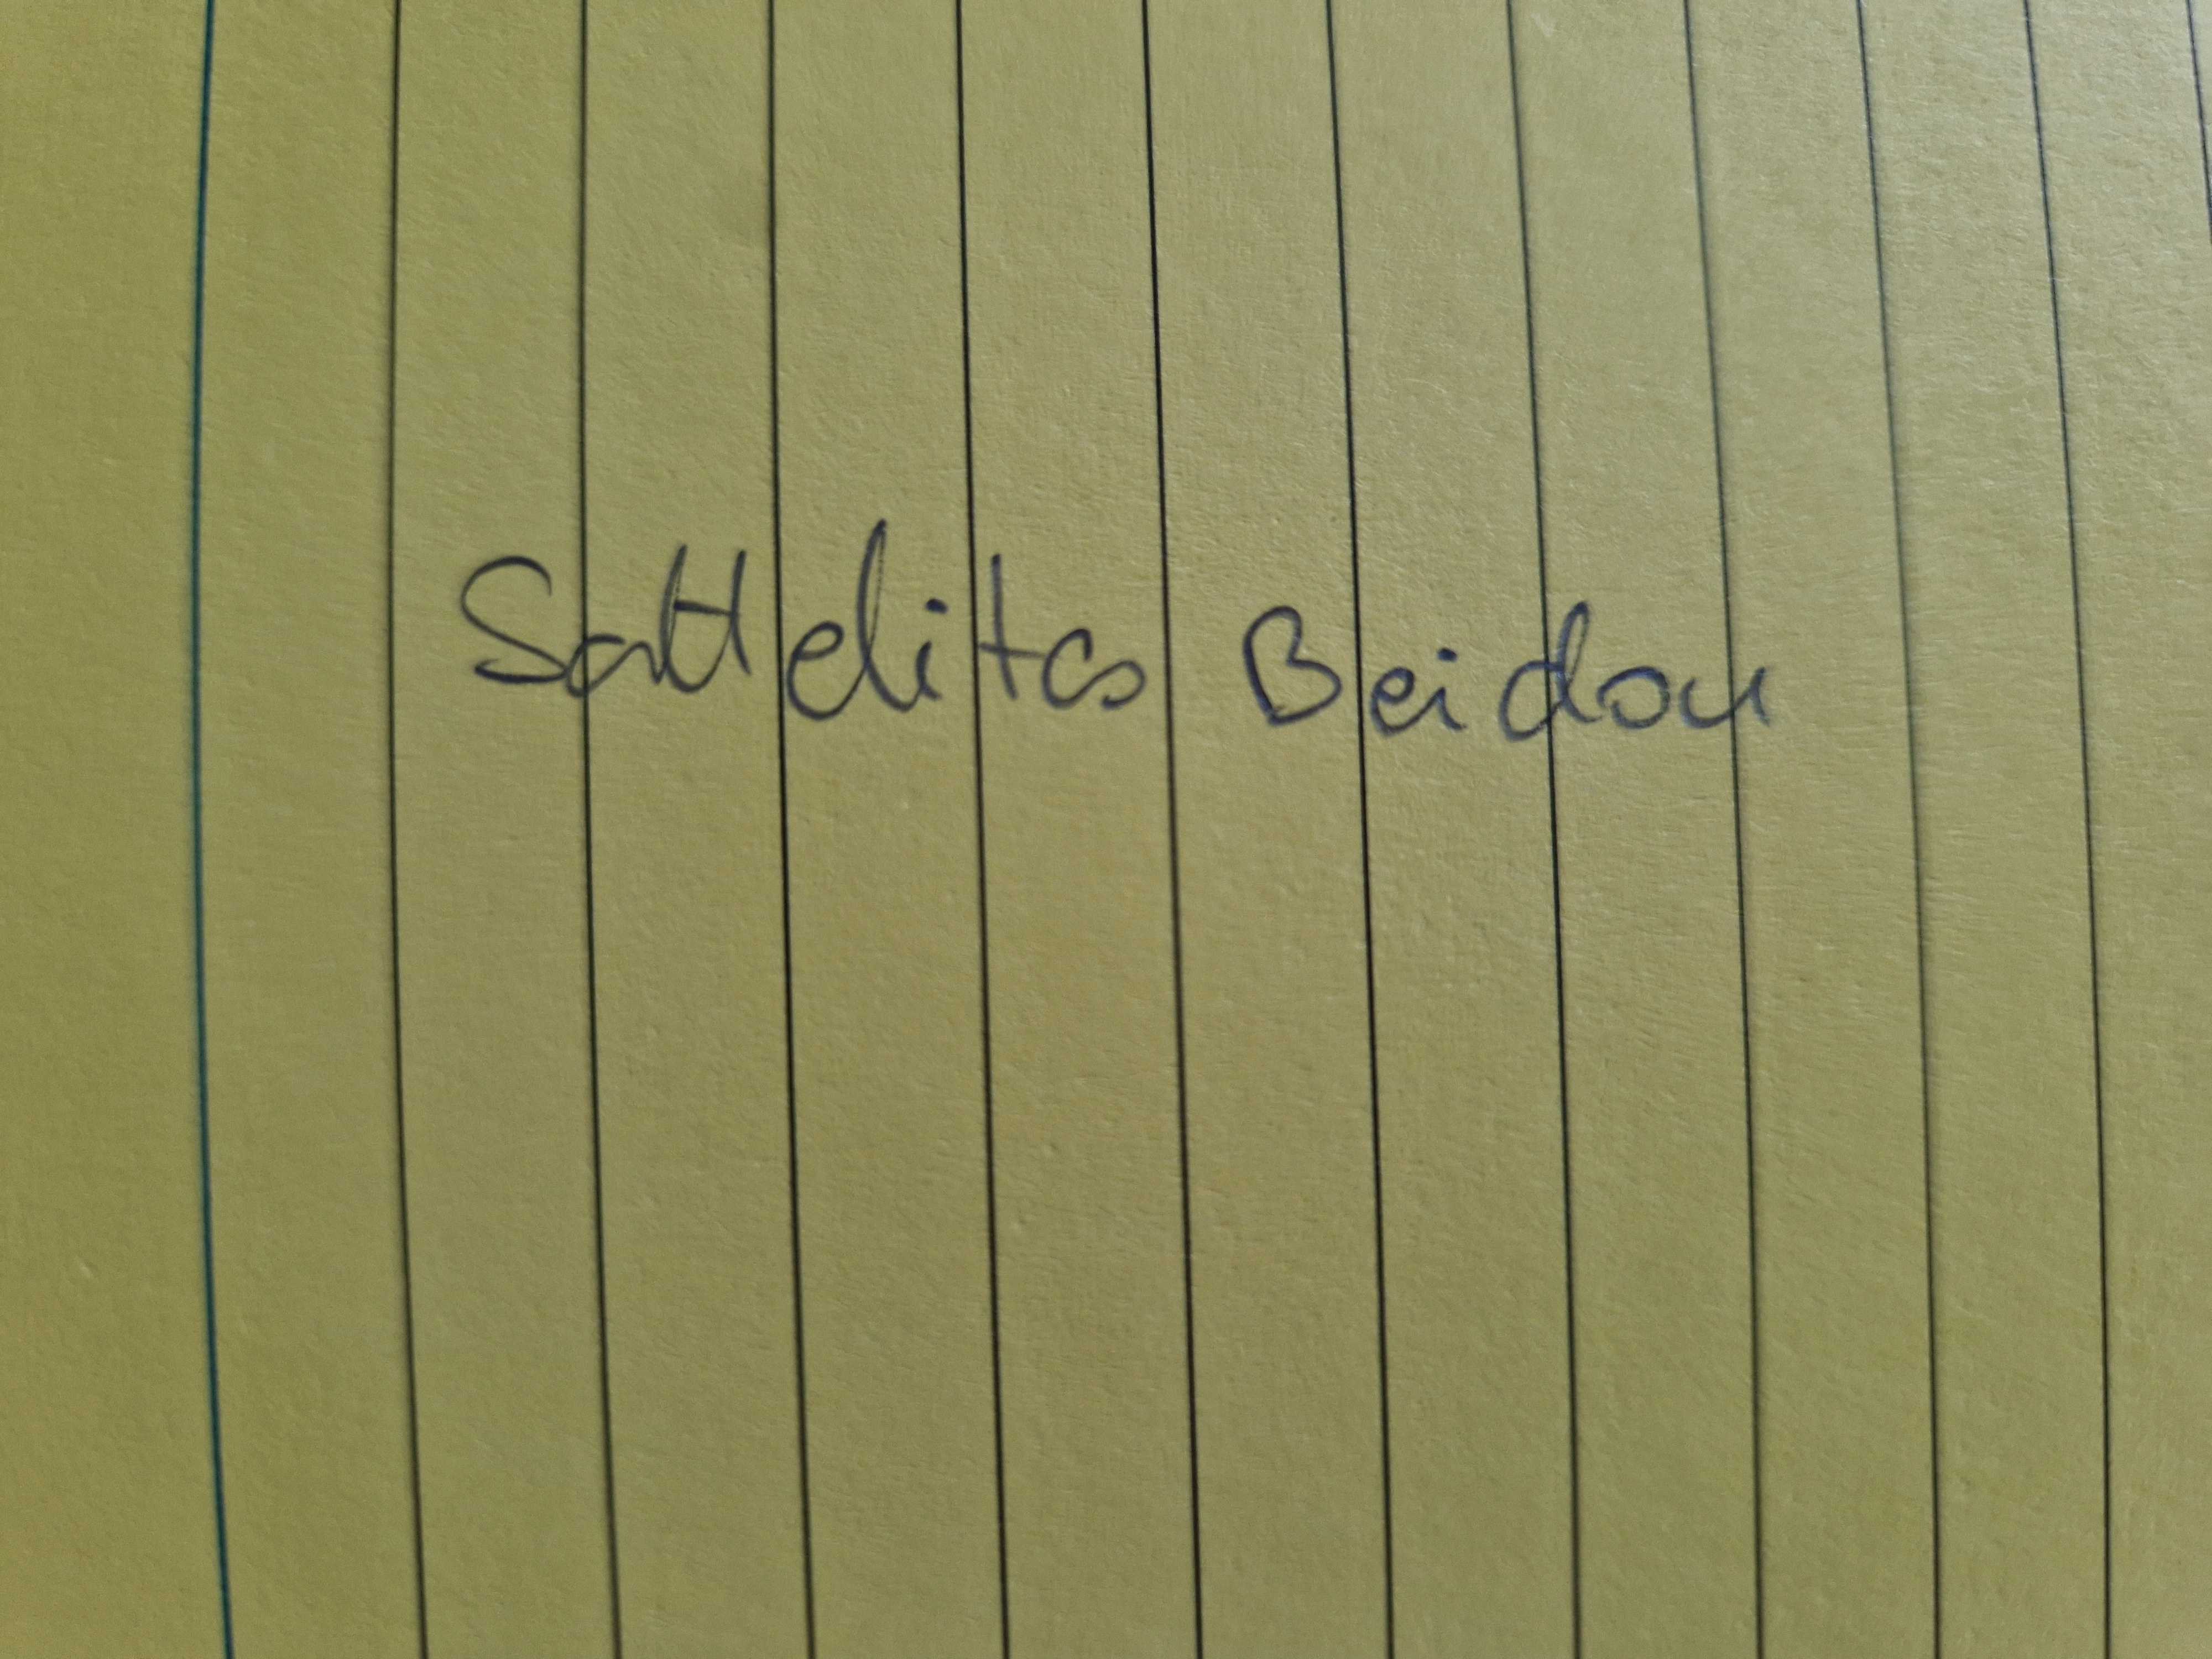 Sattelites Beidou